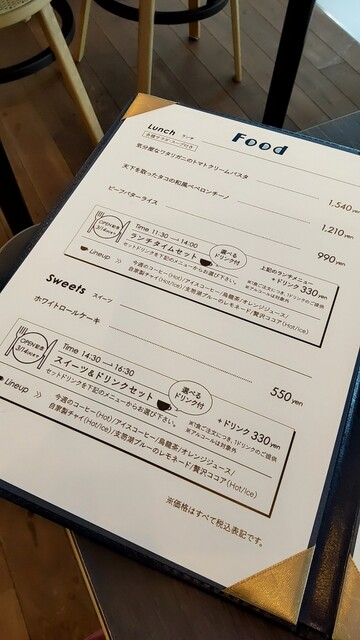 Food
Lunch ランチ
全種サラダ・スープ付き
気分屋なワタリガニのトマトクリームパスタ 1,540yen
天下を取ったタコの和風ペペロンチーノ 1,210yen
ビーフバターライス 990yen
OPEN記念
3/14(木)まで
Time 11:30→14:00
ランチタイムセット
セットドリンクを下記のメニューからお選び下さい。
選べる
ドリンク付
上記のランチメニュー
+ドリンク 330yen
※1食ご注文につき、1ドリンクのご提供
※アルコールは対象外
Lineup
今週のコーヒー(Hot)/アイスコーヒー/烏龍茶/オレンジジュース/
自家製チャイ(Hot/Ice)/支笏湖ブルーのレモネード/贅沢ココア(Hot/Ice)
Sweets スイーツ
ホワイトロールケーキ 550yen
OPEN記念
3/14(木)まで
Time 14:30→16:30
スイーツ&ドリンクセット
セットドリンクを下記のメニューからお選び下さい。
選べる
ドリンク付
+ドリンク 330yen
※1食ご注文につき、1ドリンクのご提供
※アルコールは対象外
Lineup
今週のコーヒー(Hot)/アイスコーヒー/烏龍茶/オレンジジュース/
自家製チャイ(Hot/Ice)/支笏湖ブルーのレモネード/贅沢ココア(Hot/Ice)
※価格はすべて税込表記です。